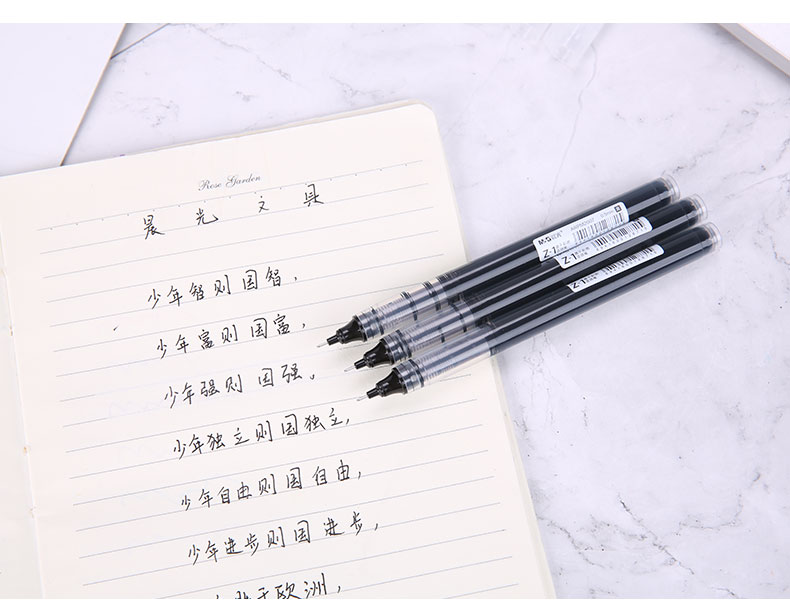 Rose Garden
晨光文具
少年智则国智，
少年富则国富，
少年强则国强。
少年独立则国独立，
少年自由则国自由，
少年进步则国进步，
于欧洲，
M&G
Z-1
Z-1
Z-1